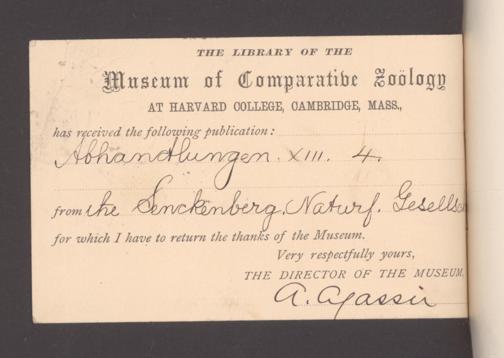 THE LIBRARY OF THE
Museum of Comparative Zoölogy
AT HARVARD COLLEGE, CAMBRIDGE, MASS.,
has received the following publication:
Abhandlungen. XIII. 4.
from the Senckenberg. Naturf. Gesells
for which I have to return the thanks of the Museum.
Very respectfully yours,
THE DIRECTOR OF THE MUSEUM.
A. Agassiz